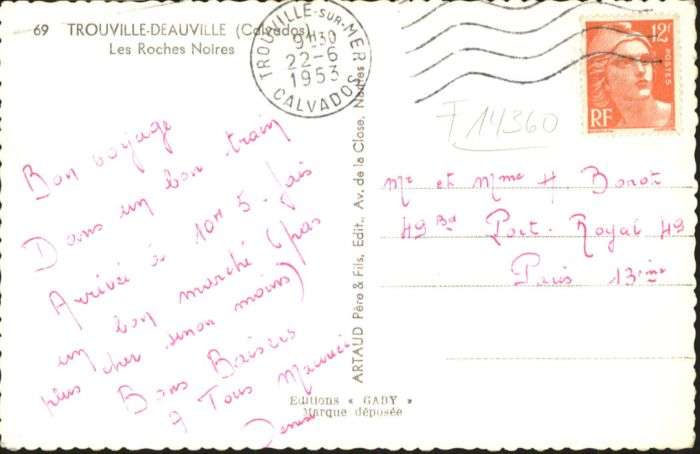 69 TROUVILLE-DEAUVILLE (Calvados)
Les Roches Noires
TROUVILLE-SUR-MER
9H30
22-6
1953
CALVADOS
12F
POSTES
RF
F14360
Bon voyage
Dans un bon train
Arrivée à 10H 5. fais
un bon marché (pas
plus cher sinon moins)
Bons Baisers
A Tous Maurice
Denise
Mr et Mme H Borot
49 Bd Port-Royal 49
Paris 13ème
ARTAUD Père & Fils, Edit., Av. de la Close, Nantes
Editions « GABY »
Marque déposée